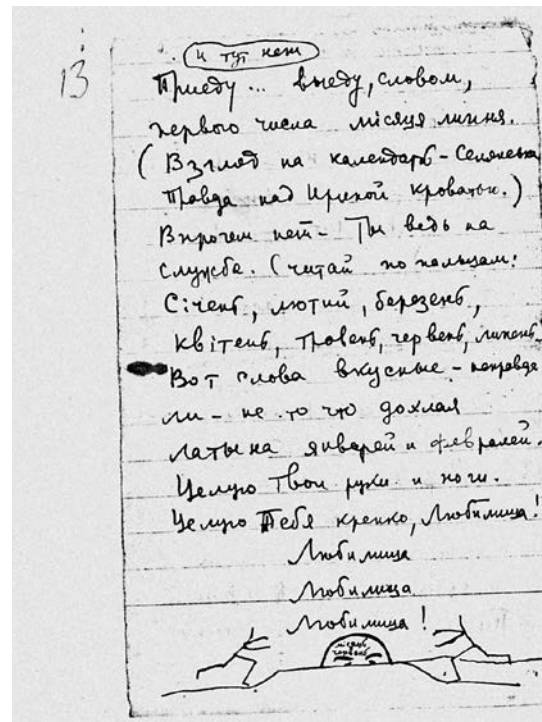 13
и тут нет
Приеду... выеду, словом,
первого числа місяця липня.
(Взгляд на календарь - Селянська
Правда над Ириной кроватью.)
Впрочем нет - Ты ведь на
службе. (читай по пальцам:
Січень, лютий, березень,
квітень, травень, червень, липень.
Вот слова вкусные - неправда
ли - не то что дохлая
латына январей и февралей.
Целую Твои руки и ноги.
Целую Тебя крепко, Любимица!
Любимица
Любимица
Любимица!
місяць
червень